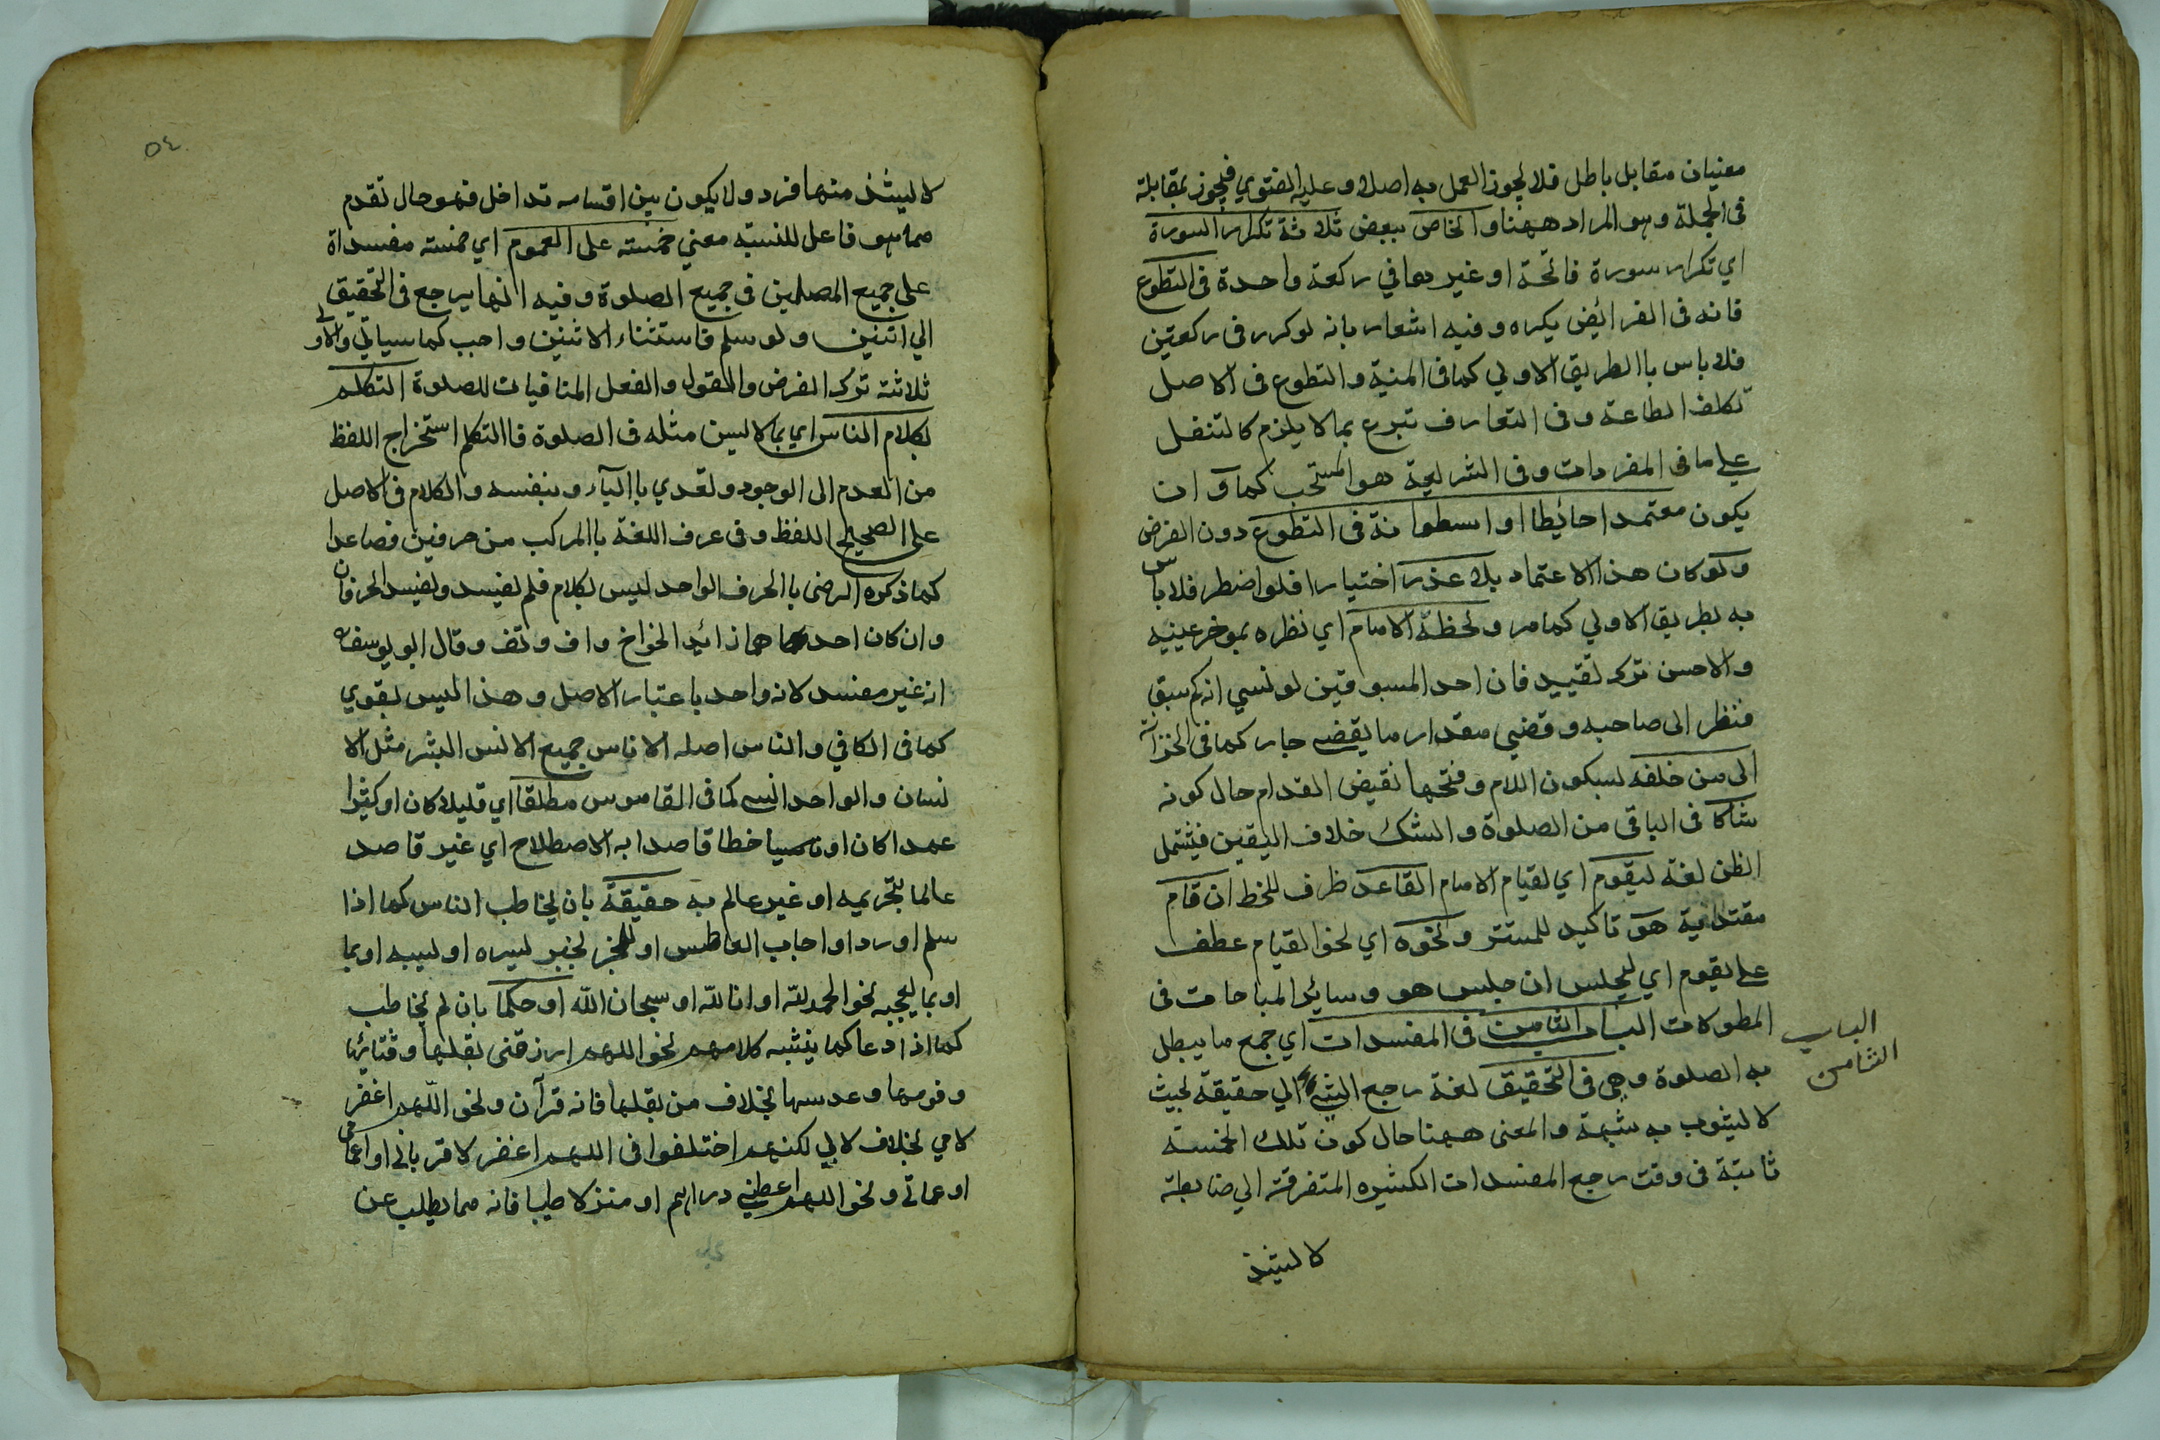 معنيان مقابل باطل فلا يجوز العمل به اصلا و عليه الفتوي فيجوز بمقابلة
فى الجملة وهو المراد ههنا والخاص ببعض ثلاثة تكرار السورة
اي تكرار سورة فاتحة او غيرهما في ركعة واحدة فى التطوع
فانه فى الفرائض يكره وفيه اشعار بانه لو كرر فى ركعتين
فلا باس باالطريق الاولي كما فى المنية والتطوع فى الاصل
تكلف الطاعة وفى التعارف تبرع بما لا يلزم كالتنفل
على ما فى المفردات وفى الشريعة هو المستحب كما و ان
يكون معتمدا حائطا او اسطوانة فى التطوع دون الفرض
ولو كان هذا الاعتماد بلا عذر اختيارا فلو اضطر فلا باس
به بطريق الاولي كما مر ولحظة الامام اي نظره بموخر عينيه
والاحسن ترك تقييد فان احد المسبوقين لو نسي انه كم سبق
فنظر الى صاحبه وقضي مقدار ما يقضه جاز كما فى الخزانة
الى من خلفه بسكون اللام وفتحها نقيض القدام حال كونه
شاكا فى الباقى من الصلوة والشك خلاف اليقين فيشتمل
الظن لغة ليقوم اي لقيام الامام القاعد ظرف للحظ ان قام
مقتداية هو تاكيد للمستتر ونحوه اي نحو القيام عطف
على يقوم اي ليجلس ان جلس هو وسائر المباحات فى
المطولات الباب الثامن فى المفسدات اي جمع ما يبطل
به الصلوة وهي فى التحقيق لغة رجع الشيء الي حقيقة بحيث
لا يشوب به شبهة والمعنى ههنا حال كون تلك الخمسة
ثابتة فى وقت رجع المفسدات الكثيره المتفرقة الي ضابطة
لا ليشذ
الباب
الثامن
٥٤
لا ليشذ منها فرد ولا يكون بين اقسامه تداخل فهو حال تقدم
مما هو فاعل للنسبة معني خمسة على العموم اي خمسة مفسداة
على جميع المصلين فى جميع الصلوة وفيه انها يرجع فى التحقيق
الي اثنين ولو سلم فاستثناء الاثنين واجب كما سياتي والاو
ثلاثة ترك الفرض والقول والفعل المنافيات للصلوة التكلم
بكلام الناس اي بما لا ليس مثله فى الصلوة فاالتكلم استخراج اللفظ
من العدم الى الوجود ولعدي باالباء وبنفسه والكلام فى الاصل
على الصحيح اللفظ وفى عرف اللغة باالمركب من حرفين فصاعدا
كما ذكره الرضى باالحرف الواحد ليس بكلام فلم يفسد ويفسد الحرفان
وان كان احدهما زائد انحو اخ واف وتف وقال ابو يوسف
انه غير مفسد لانه واحد باعتبار الاصل وهذا ليس بقوي
كما فى الكافي والناس اصله الاناس جميع الانس البشر مثل الا
نسان والواحد انسي كما فى القاموس مطلقا اي قليلا كان او كثيرا
عمدا كان او ناسيا خطا قاصدا به الاصطلاح اي غير قاصد
عالما بتحريمه او غير عالم به حقيقة بان يخاطب الناس كما اذا
سلم او رد او اجاب العاطس او المخبر بخبر ليسره او بما
او بما يعجبه نحو الحمد لله او انا لله او سبحان الله او حكما بان لم يخاطب
كما اذا دعا كما يشبه كلامهم نحو اللهم ارزقنى بقلها وقثائها
وفومها وعدسها بخلاف من بقلها فانه قرآن ونحو اللهم اغفر
لامي بخلاف لابي لكنهم اختلفوا فى اللهم اغفر لاقربائى او اعمامي
او عماتى ونحو اللهم اعطني دراهم او منزلا طيبا فانه مما يطلب عن